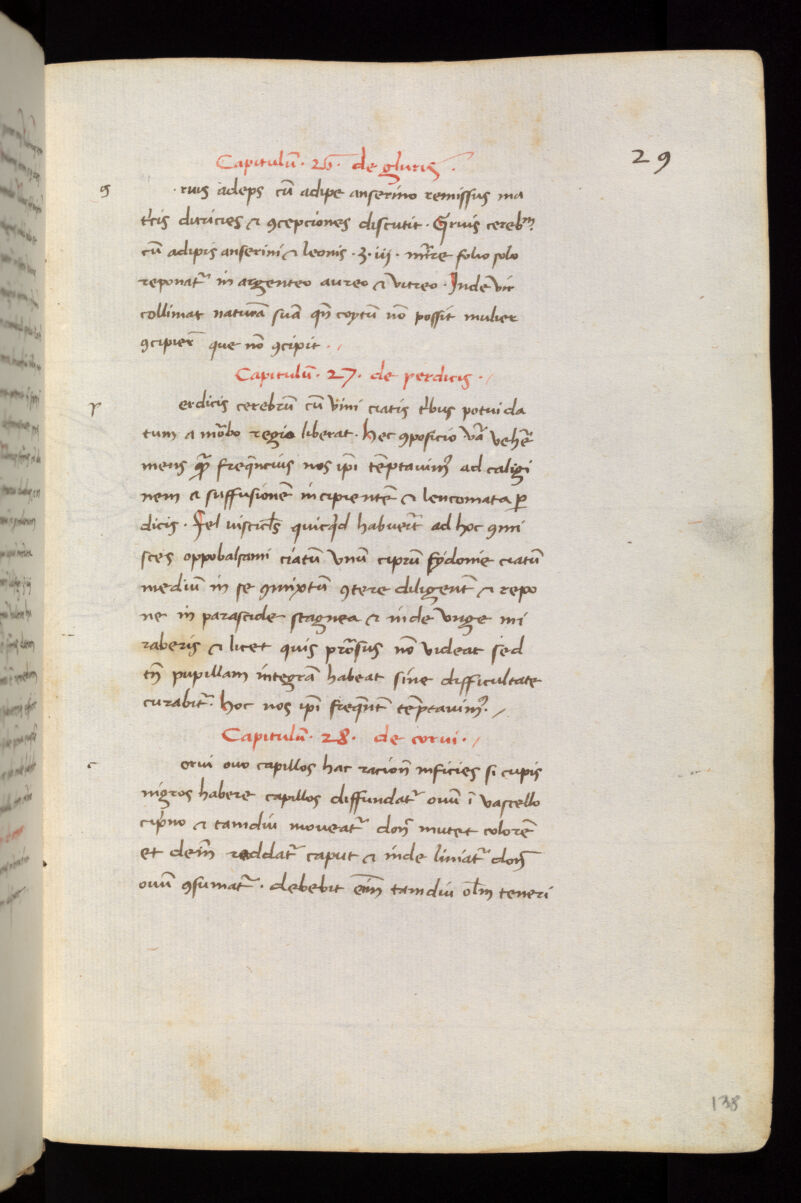 29
Capitulū. 26. de gluris.
g .ruis adeps cū adipe anserino remissus ma
tͥcis duricies ⁊ ꝯcepciones discutit. Gruis cerebꝝ
cū adipis anserini ⁊ leonis .ʒ. iij. mͥre folio solo
reponatᷣ in argenteo aureo ⁊ vitreo. Inde vir
collimat naturā suā qn̄ coytū nō possit mulier
ꝯcipier̄ que nō ꝯcipit.
Capitulū. 27. de perdicis.
p erdicis cerebrū cū vini ciatis tͥbus potui da
tum a morbo regio liberat. Hec ꝯposicio vā vehē
mens quā frequēcius nos ip̄i tēptauimꝰ ad caligi
nem ⁊ suffusionē incipientē ⁊ leucomata per
dicis. Fel viscidꝭ quicqͥd habuerīt ad hoc ꝯmi
sces oppobalsami ciatū vnū ciprū sydonie ciatū
mediū in se ꝯmixtū ꝯtere diligent̄ ⁊ repo
ne in parascide stagnea ⁊ inde vnge mi
raberis ⁊ licet quis prorsus nō videat sed
tn̄ pupillam integrā habeat sine difficultate
curabitᷣ. Hoc nos ip̄i frequēt̄ tēptauimꝰ.
Capitulū. 28. de corui.
c orui ouo capillos hac racion̄ inficies si cupis
nigros habere capillos diffundatᷣ ouū ī vascello
ciprino ⁊ tamdiu moueatᷣ don̄ mutet colorē
et dein̄ reddatᷣ caput ⁊ inde liniatᷣ don̄
ouū ꝯsumatᷣ. debebit em̄ tamdiu olm̄ teneri
138